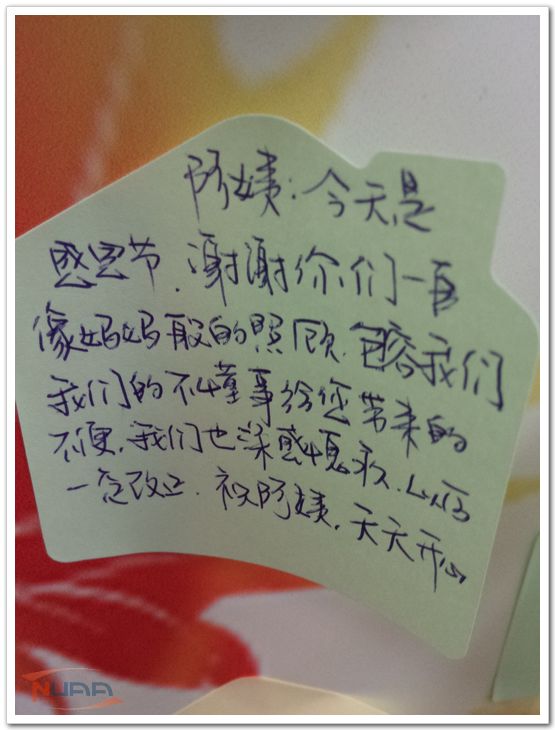 阿姨：今天是
感恩节.谢谢你们一直
像妈妈般的照顾.包容我们
我们的不懂事给您带来的
不便.我们也深感愧疚.以后
一定改正.祝阿姨,天天开心
NUAA